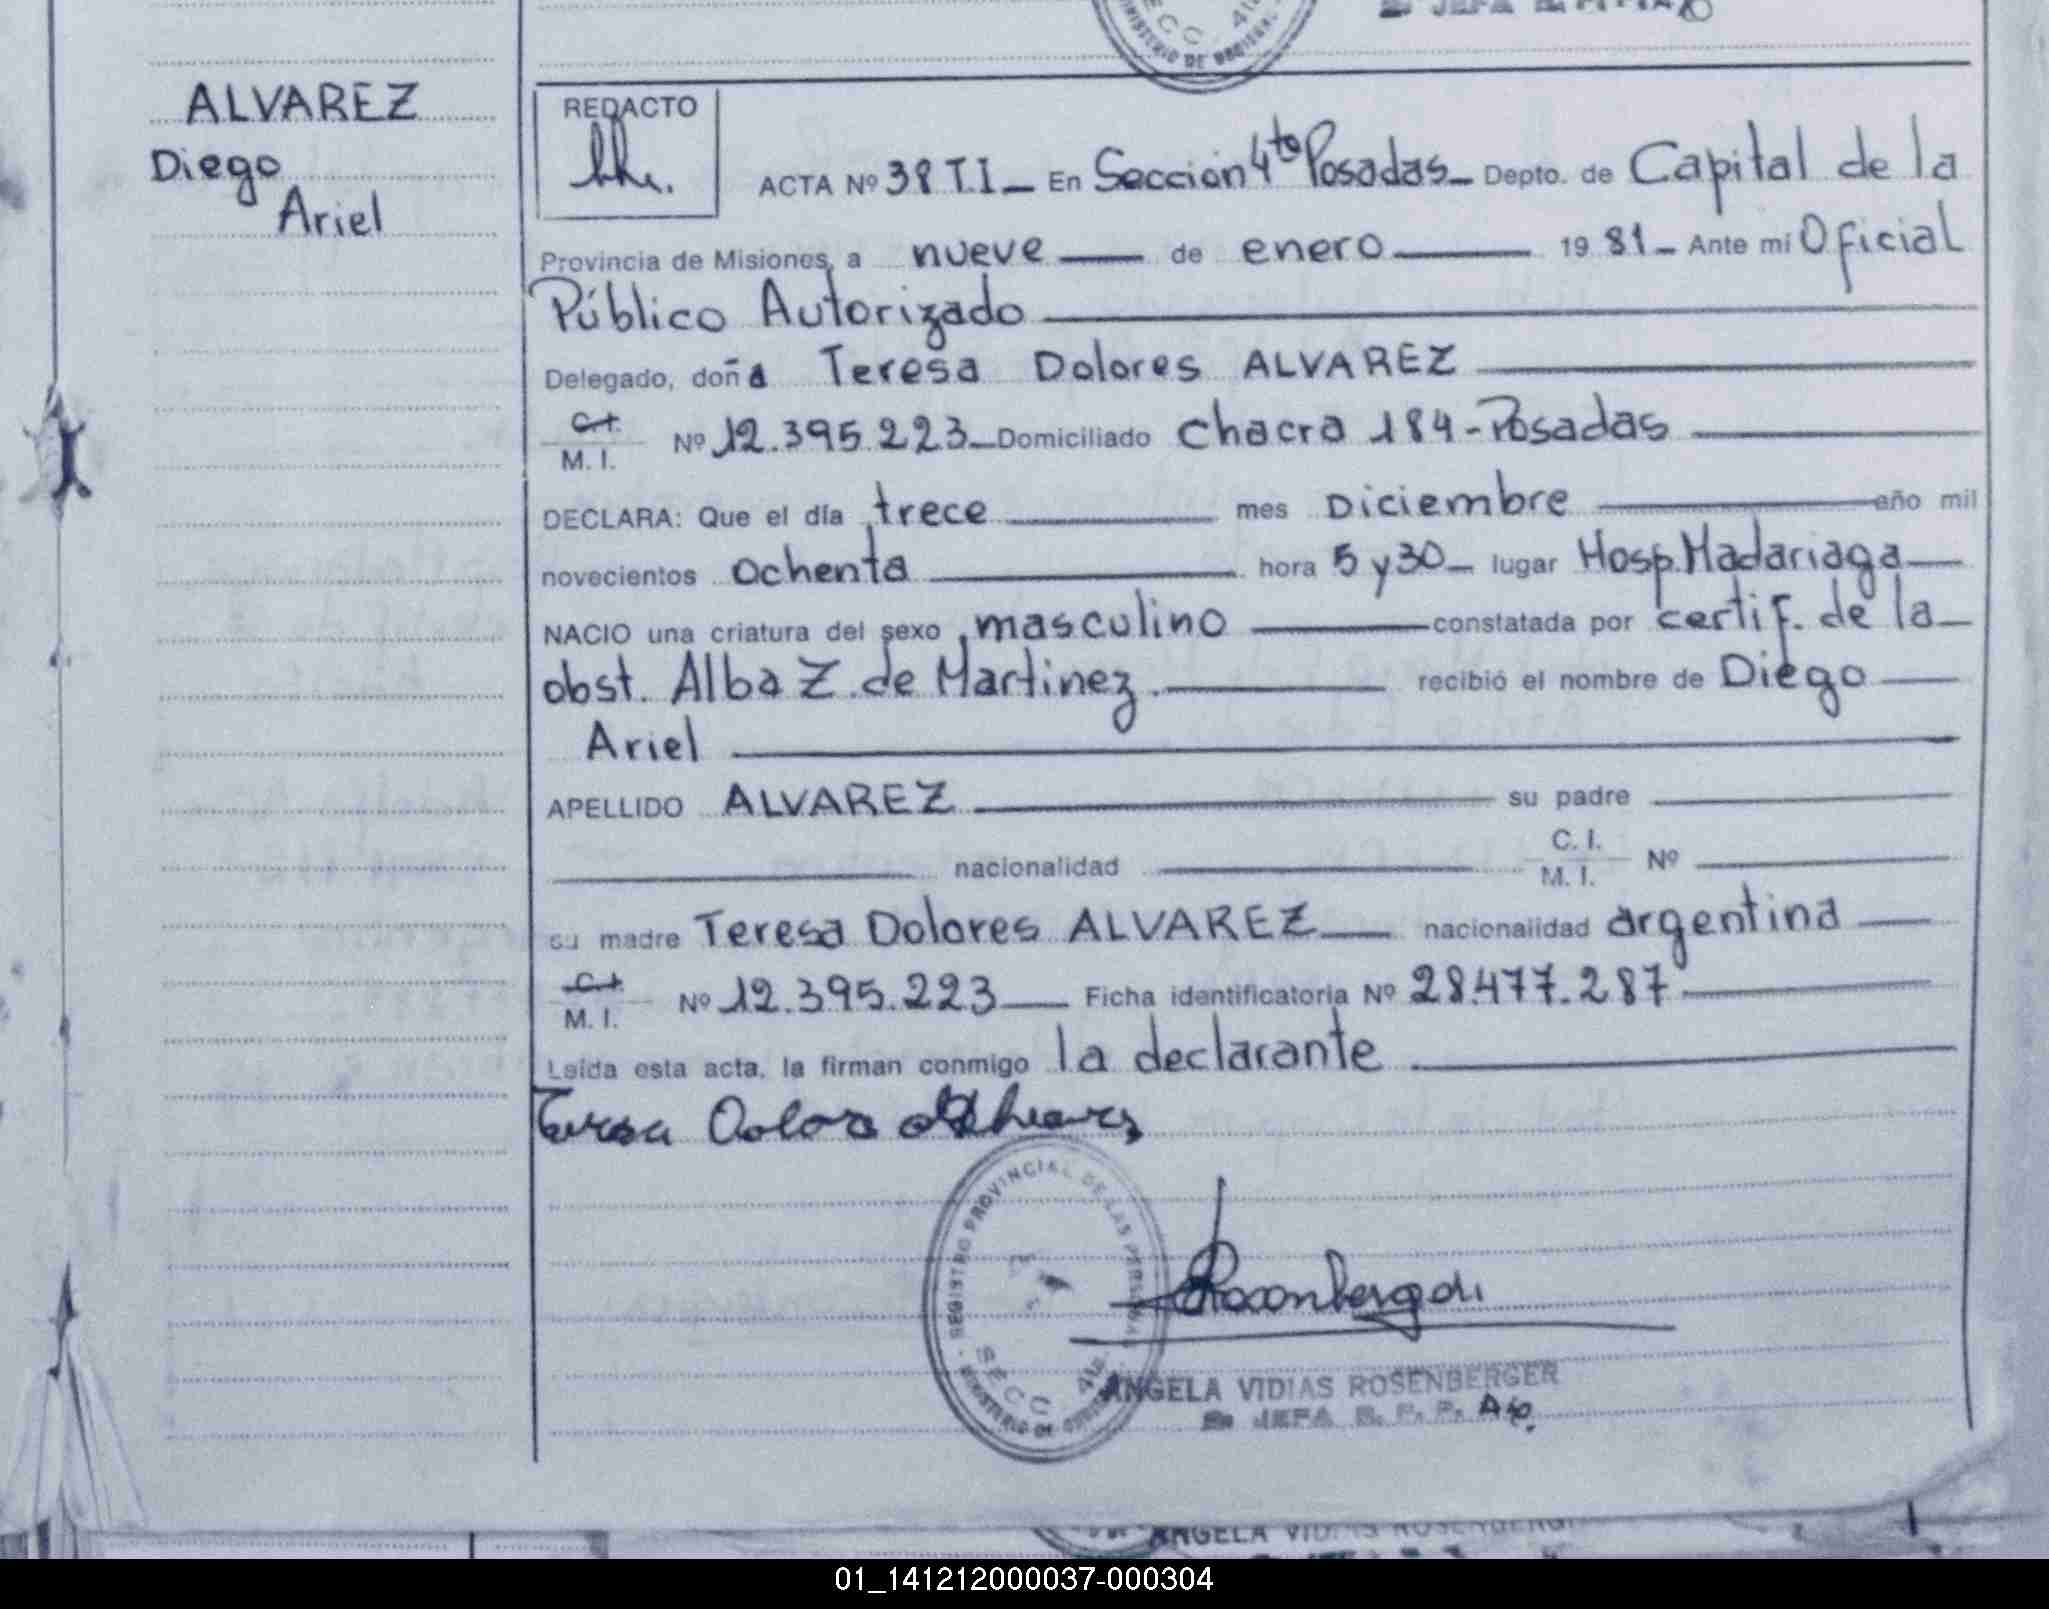 ALVAREZ
Diego
Ariel
REDACTO
ACTA Nº 38 T.I _ En Sección 4to Posadas _ Depto. de Capital de la
Provincia de Misiones, a nueve de enero 19 81 _ Ante mi Oficial
Público Autorizado
Delegado, doña Teresa Dolores ALVAREZ
C.I.
M. I.
Nº 12.395.223 _ Domiciliado Chacra 184 - Posadas
DECLARA: Que el día trece mes Diciembre año mil
novecientos ochenta hora 5 y 30 _ lugar Hosp. Madariaga
NACIO una criatura del sexo masculino constatada por certif. de la
obst. Alba Z. de Martinez. recibió el nombre de Diego
Ariel
APELLIDO ALVAREZ su padre
nacionalidad C. I.
M. I. Nº
su madre Teresa Dolores ALVAREZ nacionalidad argentina
C.I.
M. I.
Nº 12.395.223 Ficha identificatoria Nº 28.477.287
Leída esta acta, la firman conmigo la declarante
Teresa Dolores Alvarez
REGISTRO PROVINCIAL DE LAS PERSONAS
SECC 4to.
MINISTERIO DE GOBIERNO
ANGELA VIDIAS ROSENBERGER
JEFA R. P. P.
ANGELA VIDIAS ROSENBERGER
01_141212000037-000304